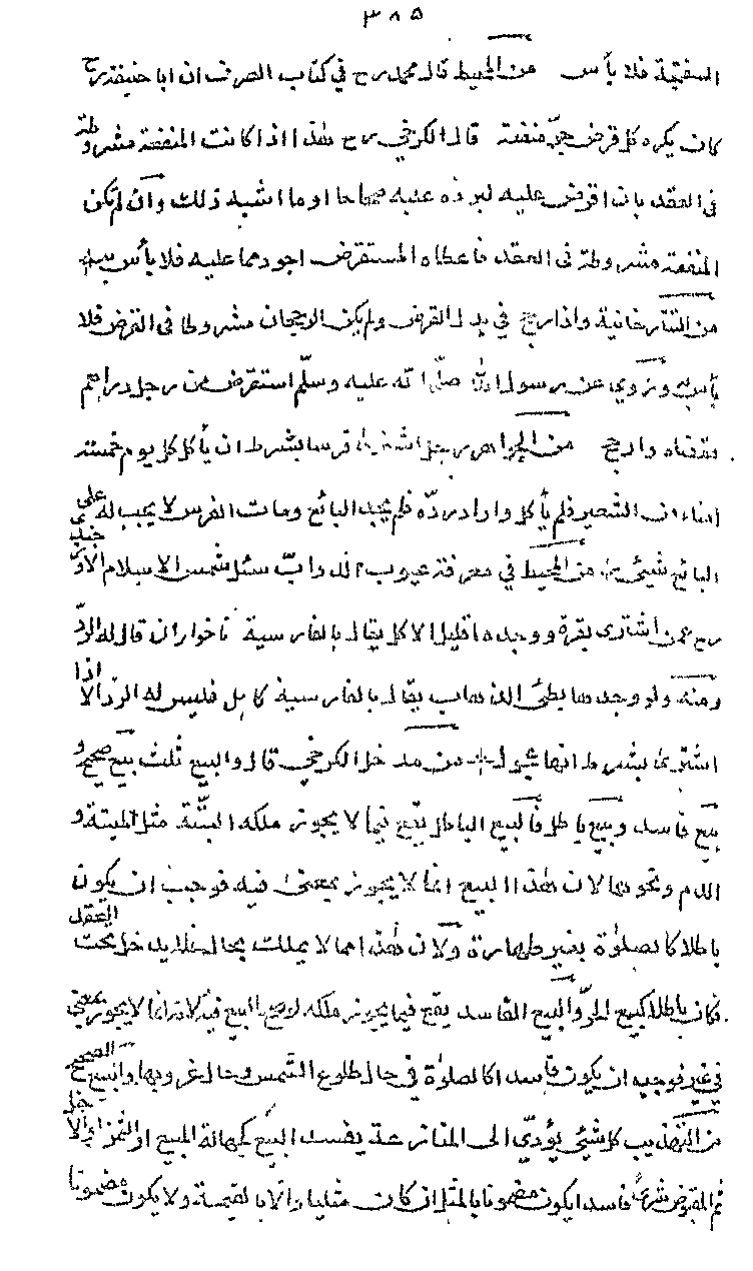 ٣٨٥
السفتجة فلا بأس من المحيط قال محمد رح في كتاب الصرف ان ابا حنيفة رح
كان يكره كل قرض جرّ منفعة قال الكرخي رح هذا اذا كانت المنفعة مشروطة
فى العقد بان اقرض عليه ليرده عليه صحاحا او ما اشبه ذلك وان لم تكن
المنفعة مشروطة فى العقد فاعطاه المستقرض اجود مما عليه فلا بأس به
من التتارخانية واذا رجح في بدل القرض ولم يكن الرجحان مشروطا فى القرض فلا
بأس به وروي عن رسول الله صلى الله عليه وسلّم استقرض من رجل دراهم
فقضاه وارجح من الجواهر رجل اشترى فرسا بشرط ان يأكل كل يوم خمسة
امناء من الشعير فلم يأكل واراد ردّه فلم يجد البائع ومات الفرس لا يجب له على
البائع شيئ من المحيط في معرفة عيوب الدوابّ سئل شمس الاسلام الاوزجندي
رح عمن اشترى بقرة ووجدها قليل الاكل يقال بالفارسية ناخوار ان قال له الردّ
ومنه ولو وجدها بطئ الذهاب يقال بالفارسية كاهل فليس له الرد الا اذا
اشترى بشرط انها عجول من مدخل الكرخي قال والبيع ثلث بيع صحيح و
بيع فاسد وبيع باطل فالبيع الباطل يقع فيما لا يجوز ملكه البتّة مثل الميتة و
الدم ونحوها لان هذا البيع انما لا يجوز بمعنى فيه فوجب ان يكون
باطلا كالصلوٰة بغير طهارة ولان هذا مما لا يملك بحال فلا يدخل تحت العقد
فكان باطلا كبيع الحرّ والبيع الفاسد يقع فيما يجوز ملكه البيع فيه لانه انما لا يجوز بمعنى
فى غيره فوجب ان يكون فاسدا كالصلوٰة في حال طلوع الشمس وحال غروبها والبيع الصحيح
من التهذيب كل شيئ يؤدّي الى المنازعة يفسد البيع كجهالة المبيع او الثمن
ثم المقبوض شرىً فاسد ايكون مضمونا بالمثل ان كان مثليا والّا بالقيمة ولا يكون مضمونا